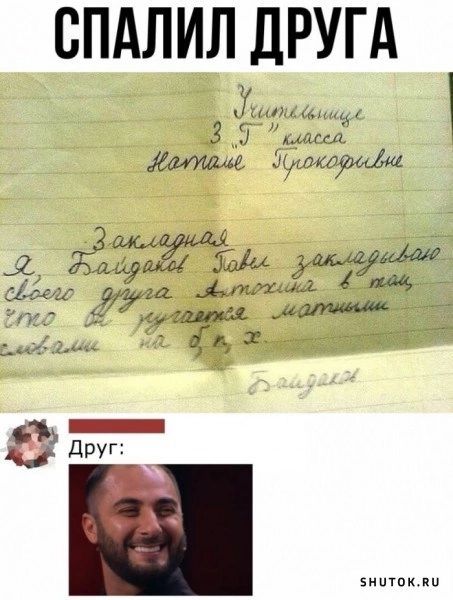 СПАЛИЛ ДРУГА
Учительнице
3 „Г" класса
Наталье Прокофывне
Закладная
Я, Байдаков Павел закладываю
своего друга Алтохина в том,
что он ругается матными
словами на б, п, х.
Байдаков
Друг:
SHUTOK.RU